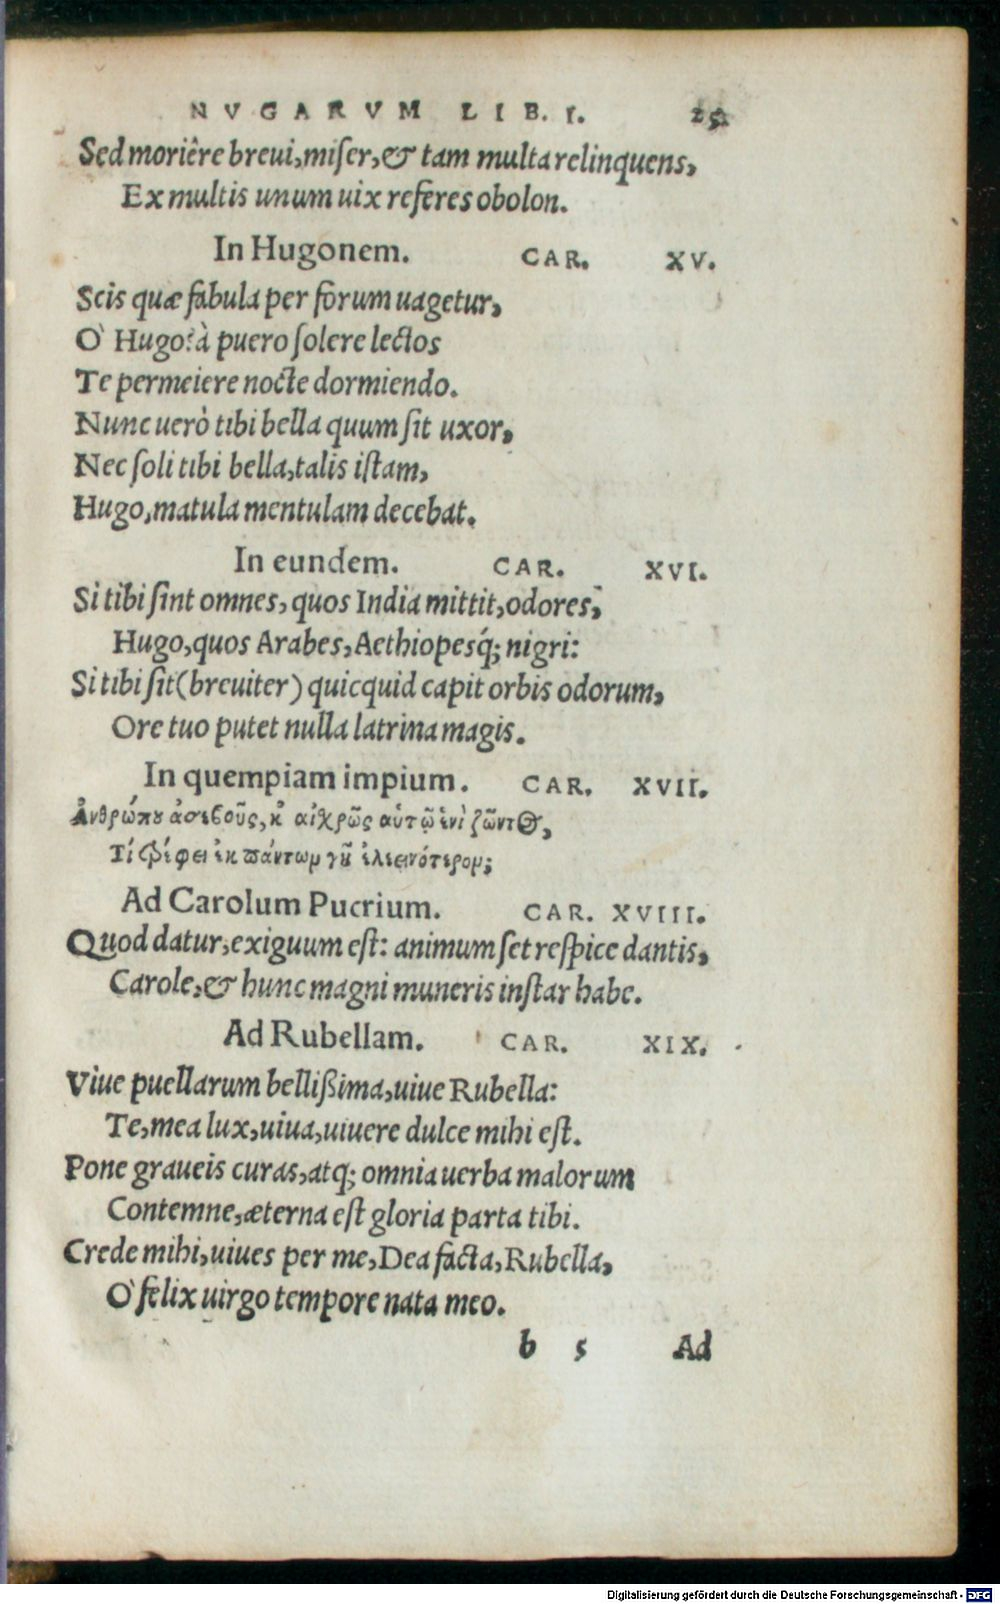 NVGARVM LIB. I. 25
Sed moriêre breui, miſer, & tam multa relinquens,
Ex multis unum uix referes obolon.
In Hugonem. CAR. XV.
Scis quæ fabula per forum uagetur,
Ò Hugo? à puero ſolere lectos
Te permeiere nocte dormiendo.
Nunc uerò tibi bella quum ſit uxor,
Nec ſoli tibi bella, talis iſtam,
Hugo, matula mentulam decebat.
In eundem. CAR. XVI.
Si tibi ſint omnes, quos India mittit, odores,
Hugo, quos Arabes, Aethiopesq́; nigri:
Si tibi ſit (breuiter) quicquid capit orbis odorum,
Ore tuo putet nulla latrina magis.
In quempiam impium. CAR. XVII.
Ἀνθρώπου ἀσεβοῦς, κ̀ αἰχρῶς αὑτῷ ἑνὶ ζῶντος,
Τί τρέφει ἐκ πάντωμ γῆ ἐλεεινότερομ;
Ad Carolum Pucrium. CAR. XVIII.
Quod datur, exiguum eſt: animum ſet reſpice dantis,
Carole, & hunc magni muneris inſtar habe.
Ad Rubellam. CAR. XIX.
Viue puellarum bellißima, uiue Rubella:
Te, mea lux, uiua, uiuere dulce mihi eſt.
Pone graueis curas, atq; omnia uerba malorum
Contemne, æterna eſt gloria parta tibi.
Crede mihi, uiues per me, Dea facta, Rubella,
Ò felix uirgo tempore nata meo.
b 5 Ad
Digitalisierung gefördert durch die Deutsche Forschungsgemeinschaft - DFG